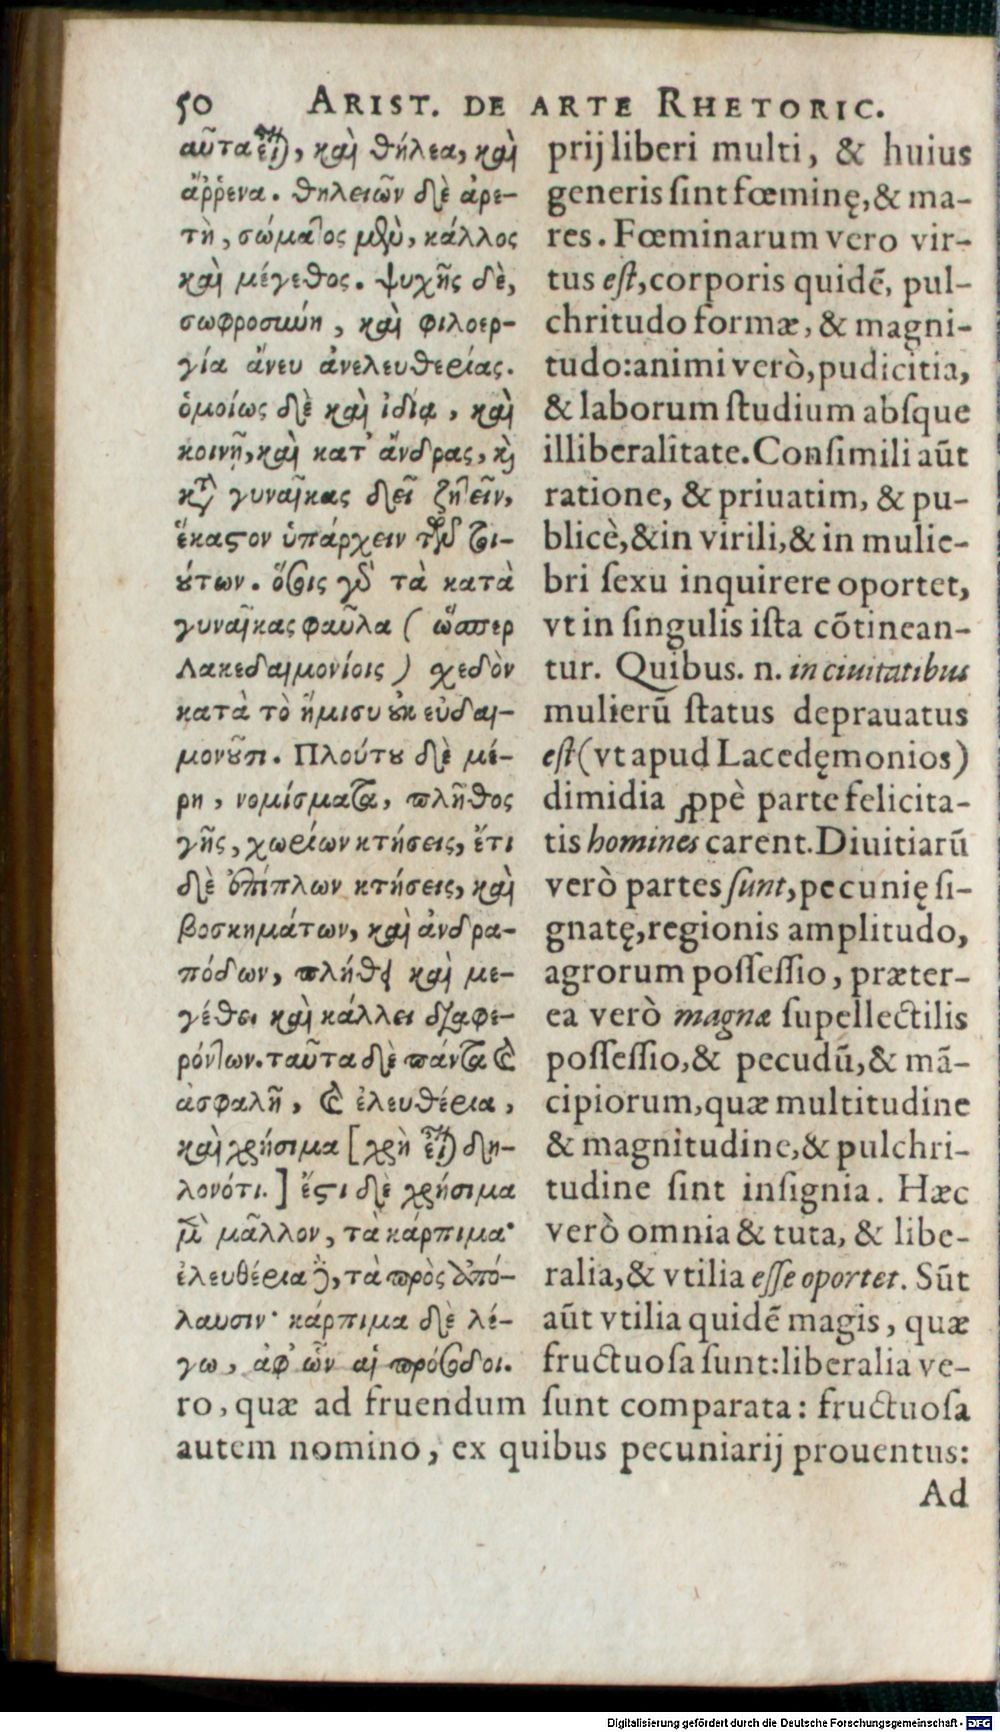 50 ARIST. DE ARTE RHETORIC.
αὗτα εἶναι, καὶ θήλεα, καὶ
ἄῤῥενα. θηλειῶν δὲ ἀρε-
τὴ, σώματος μὲν, κάλλος
καὶ μέγεθος. ψυχῆς δὲ,
σωφροσύνη, καὶ φιλοερ-
γία ἄνευ ἀνελευθερίας.
ὁμοίως δὲ καὶ ἰδίᾳ, καὶ
κοινῇ, καὶ κατ' ἄνδρας, καὶ
κατὰ γυναῖκας δεῖ ζητεῖν,
ἕκαστον ὑπάρχειν τῶν τοι-
ούτων. ὅσοις γὰρ τὰ κατὰ
γυναῖκας φαῦλα (ὥσπερ
Λακεδαιμονίοις) σχεδὸν
κατὰ τὸ ἥμισυ οὐκ εὐδαι-
μονοῦσι. Πλούτου δὲ μέ-
ρη, νομίσματα, πλῆθος
γῆς, χωρίων κτήσεις, ἔτι
δὲ ἐπίπλων κτήσεις, καὶ
βοσκημάτων, καὶ ἀνδρα-
πόδων, πλήθει καὶ με-
γέθει καὶ κάλλει διαφε-
ρόντων. ταῦτα δὲ πάντα καὶ
ἀσφαλῆ, καὶ ἐλευθέρια,
καὶ χρήσιμα [χρὴ εἶναι δη-
λονότι.] ἔστι δὲ χρήσιμα
μὲν μᾶλλον, τὰ κάρπιμα·
ἐλευθέρια δὲ, τὰ πρὸς ἀπό-
λαυσιν· κάρπιμα δὲ λέ-
γω, ἀφ' ὧν αἱ πρόσοδοι.
prij liberi multi, & huius
generis ſint fœminę, & ma-
res. Fœminarum vero vir-
tus eſt, corporis quidē, pul-
chritudo formæ, & magni-
tudo: animi verò, pudicitia,
& laborum ſtudium abſque
illiberalitate. Conſimili aūt
ratione, & priuatim, & pu-
blicè, & in virili, & in mulie-
bri ſexu inquirere oportet,
vt in ſingulis iſta cōtinean-
tur. Quibus. n. in ciuitatibus
mulierū ſtatus deprauatus
eſt (vt apud Lacedęmonios)
dimidia ꝓpè parte felicita-
tis homines carent. Diuitiarū
verò partes ſunt, pecunię ſi-
gnatę, regionis amplitudo,
agrorum poſſeſſio, præter-
ea verò magnæ ſupellectilis
poſſeſſio, & pecudū, & mā-
cipiorum, quæ multitudine
& magnitudine, & pulchri-
tudine ſint inſignia. Hæc
verò omnia & tuta, & libe-
ralia, & vtilia eſſe oportet. Sūt
aūt vtilia quidē magis, quæ
fructuoſa ſunt: liberalia ve-
ro, quæ ad fruendum ſunt comparata: fructuoſa
autem nomino, ex quibus pecuniarij prouentus:
Ad
Digitalisierung gefördert durch die Deutsche Forschungsgemeinschaft - DFG